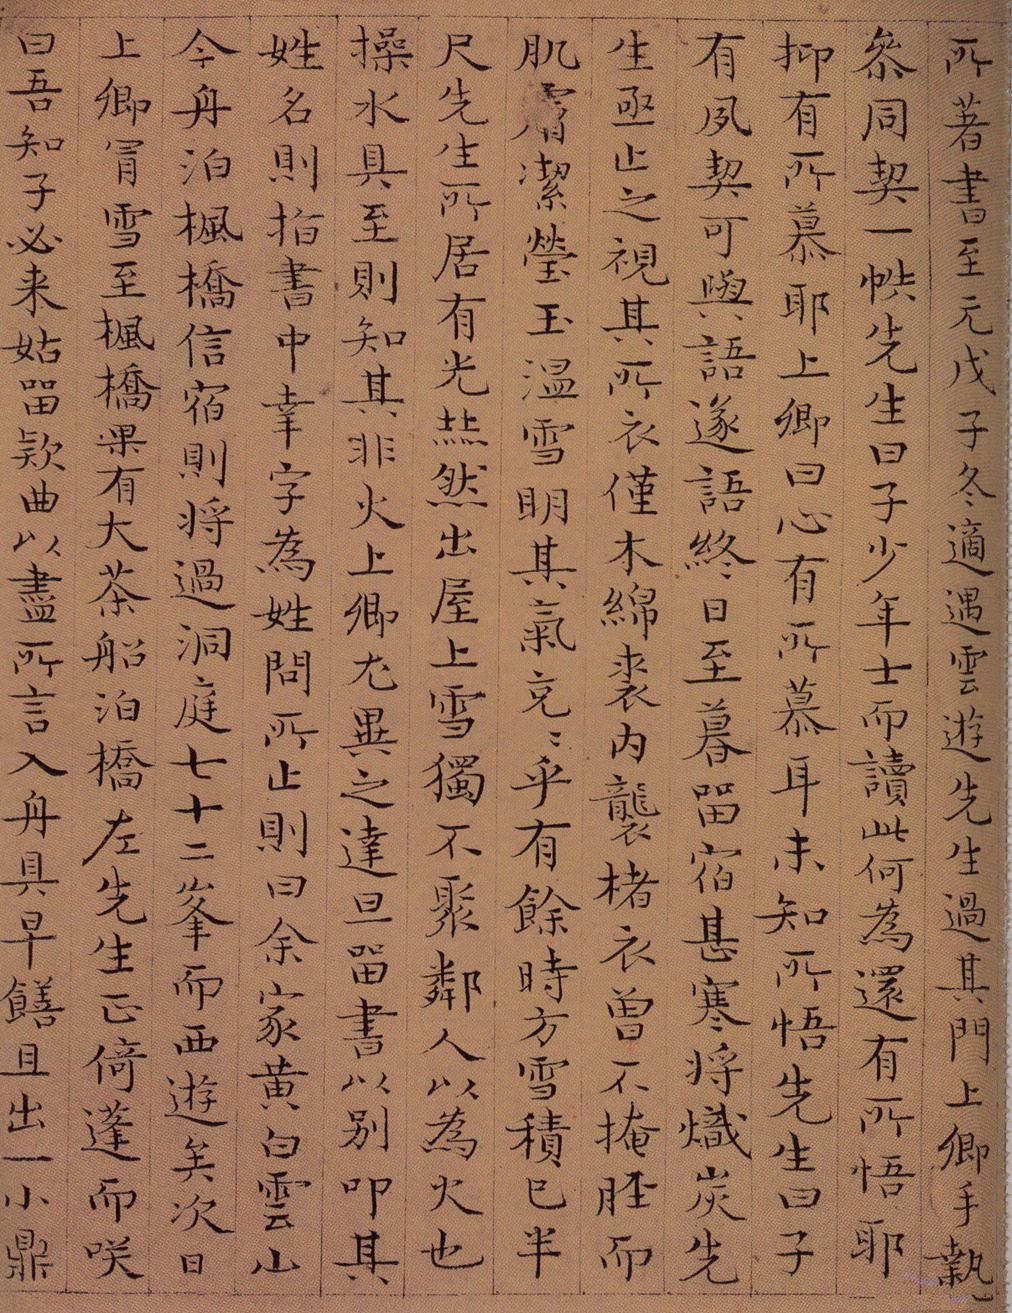 所著書至元戊子冬適遇雲遊先生過其門上卿手執
叅同契一帙先生曰子少年士而讀此何為還有所悟耶
抑有所慕耶上卿曰心有所慕耳未知所悟先生曰子
有夙契可與語遂語終日至暮畱宿甚寒将熾炭先
生亟止之視其所衣僅木綿裘内襲楮衣曾不掩胫而
肌膚潔瑩玉温雪明其氣充〻乎有餘時方雪積已半
尺先生所居有光燕然出屋上雪獨不聚鄰人以為火也
操水具至則知其非火上卿尤異之達旦畱書以别叩其
姓名則指書中幸字為姓問所止則曰余家黄白雲山
今舟泊楓橋信宿則将過洞庭七十二峯而西遊矣次日
上卿冐雪至楓橋果有大茶船泊橋左先生正倚蓬而咲
曰吾知子必来姑畱欵曲以盡所言入舟具早饍且出一小鼎